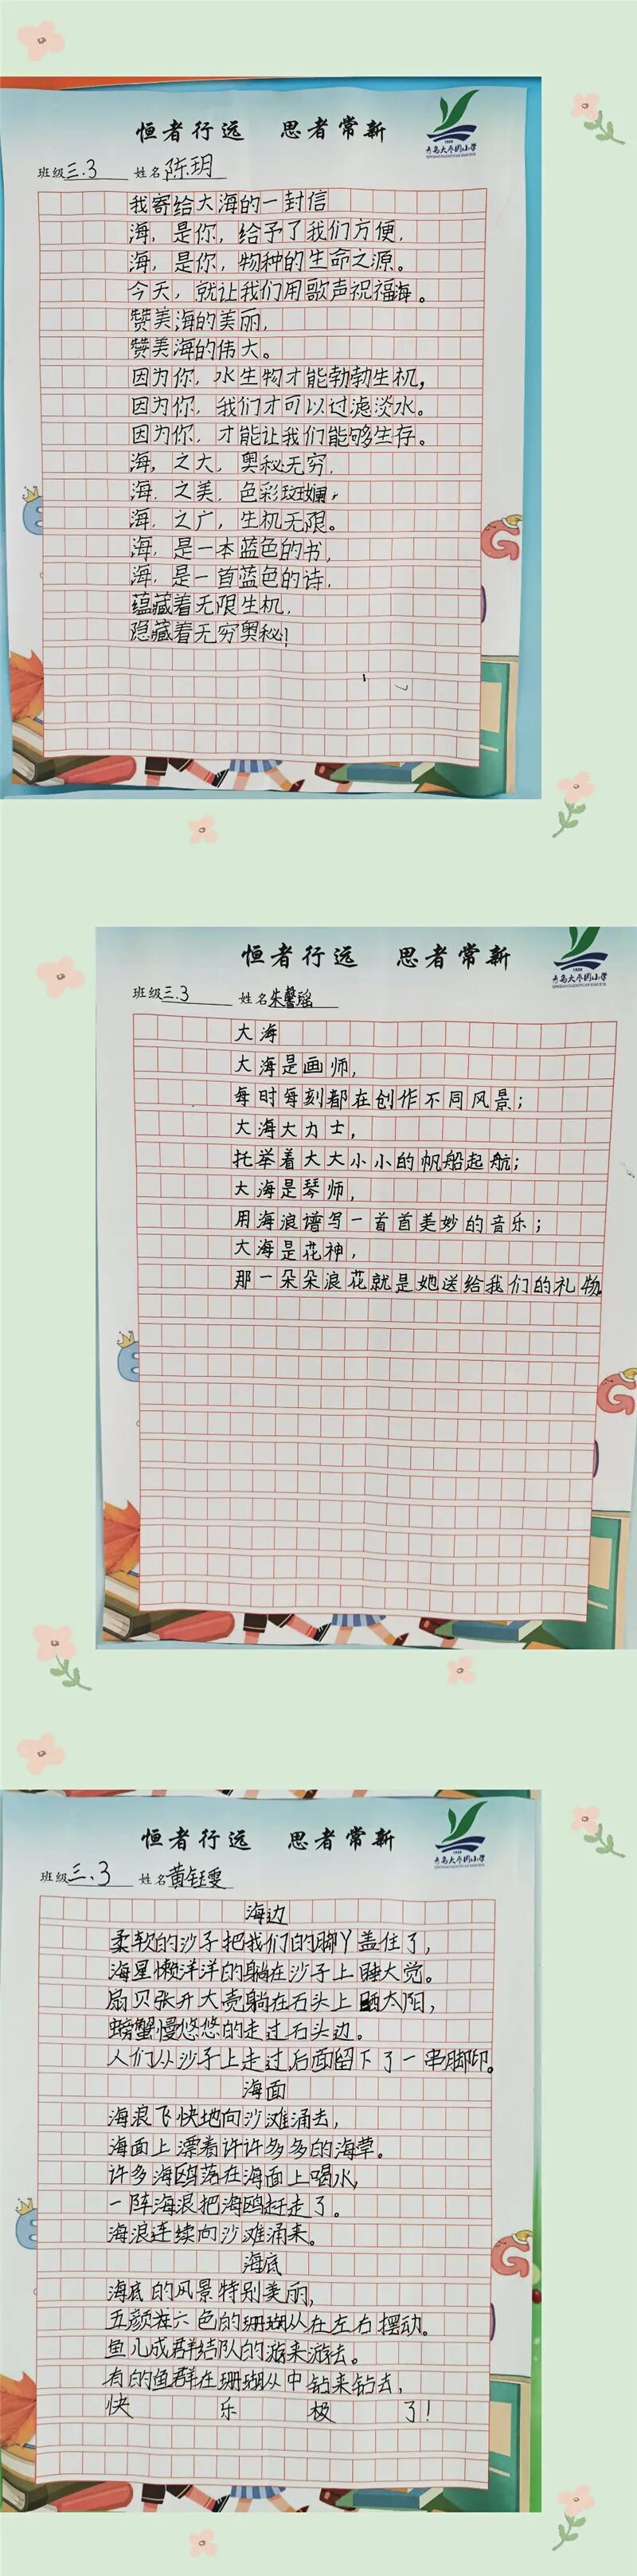 恒者行远 思者常新
1924
青岛大名路小学
班级三.3 姓名陈玥
我寄给大海的一封信
海，是你，给予了我们方便，
海，是你，物种的生命之源。
今天，就让我们用歌声祝福海。
赞美海的美丽，
赞美海的伟大。
因为你，水生物才能勃勃生机，
因为你，我们才可以过滤淡水。
因为你，才能让我们能够生存。
海，之大，奥秘无穷，
海，之美，色彩斑斓，
海，之广，生机无限。
海，是一本蓝色的书，
海，是一首蓝色的诗，
蕴藏着无限生机，
隐藏着无穷奥秘！
恒者行远 思者常新
1924
班级三.3 姓名朱馨瑶
大海
大海是画师，
每时每刻都在创作不同风景；
大海大力士，
托举着大大小小的帆船起航；
大海是琴师，
用海浪谱写一首首美妙的音乐；
大海是花神，
那一朵朵浪花就是她送给我们的礼物
恒者行远 思者常新
1924
班级三.3 姓名黄钰雯
海边
柔软的沙子把我们的脚丫盖住了，
海星懒洋洋的躺在沙子上睡大觉。
扇贝张开大壳躺在石头上晒太阳，
螃蟹慢悠悠的走过石头边。
人们从沙子上走过后面留下了一串脚印。
海面
海浪飞快地向沙滩涌去，
海面上漂着许许多多的海草。
许多海鸥落在海面上喝水，
一阵海浪把海鸥赶走了。
海浪连续向沙滩涌来。
海底
海底的风景特别美丽，
五颜六色的珊瑚从在左右摆动。
鱼儿成群结队的游来游去。
有的鱼群在珊瑚从中钻来钻去，
快 乐 极 了！